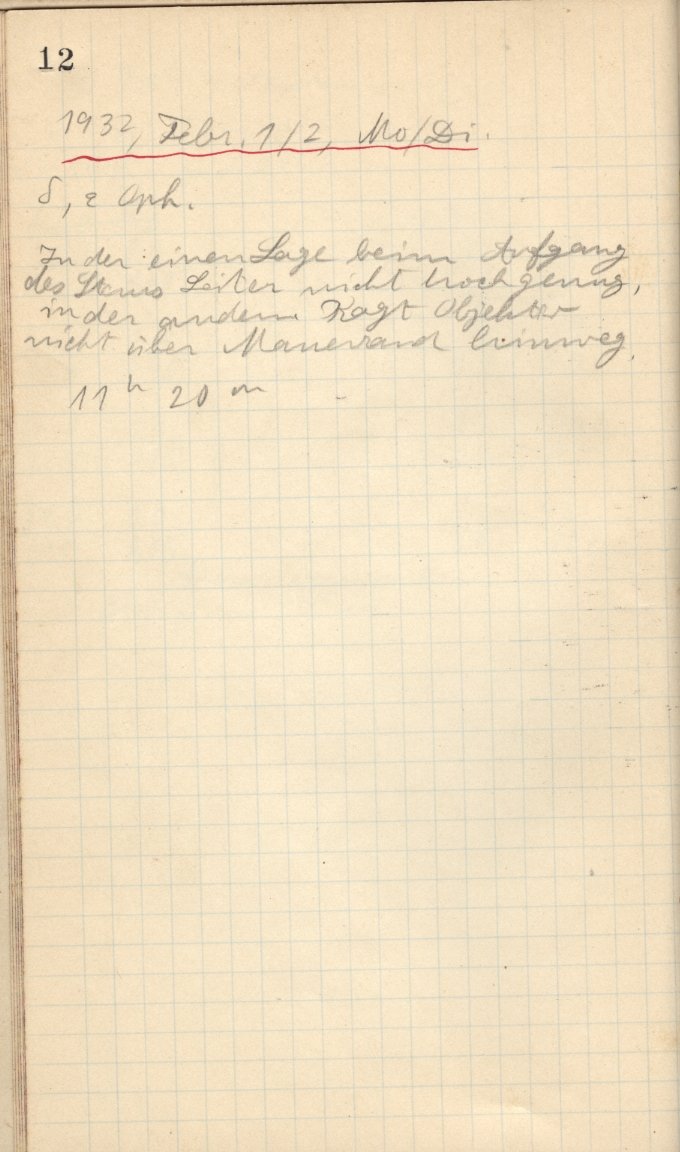 12
1932, Febr. 1/2, Mo/Di.
δ, ε Oph.
In der einen Lage beim Aufgang
des Sterns Leiter nicht hoch genug,
in der andern Ragt Objektiv
nicht über Mauerrand hinweg.
11 h 20 m